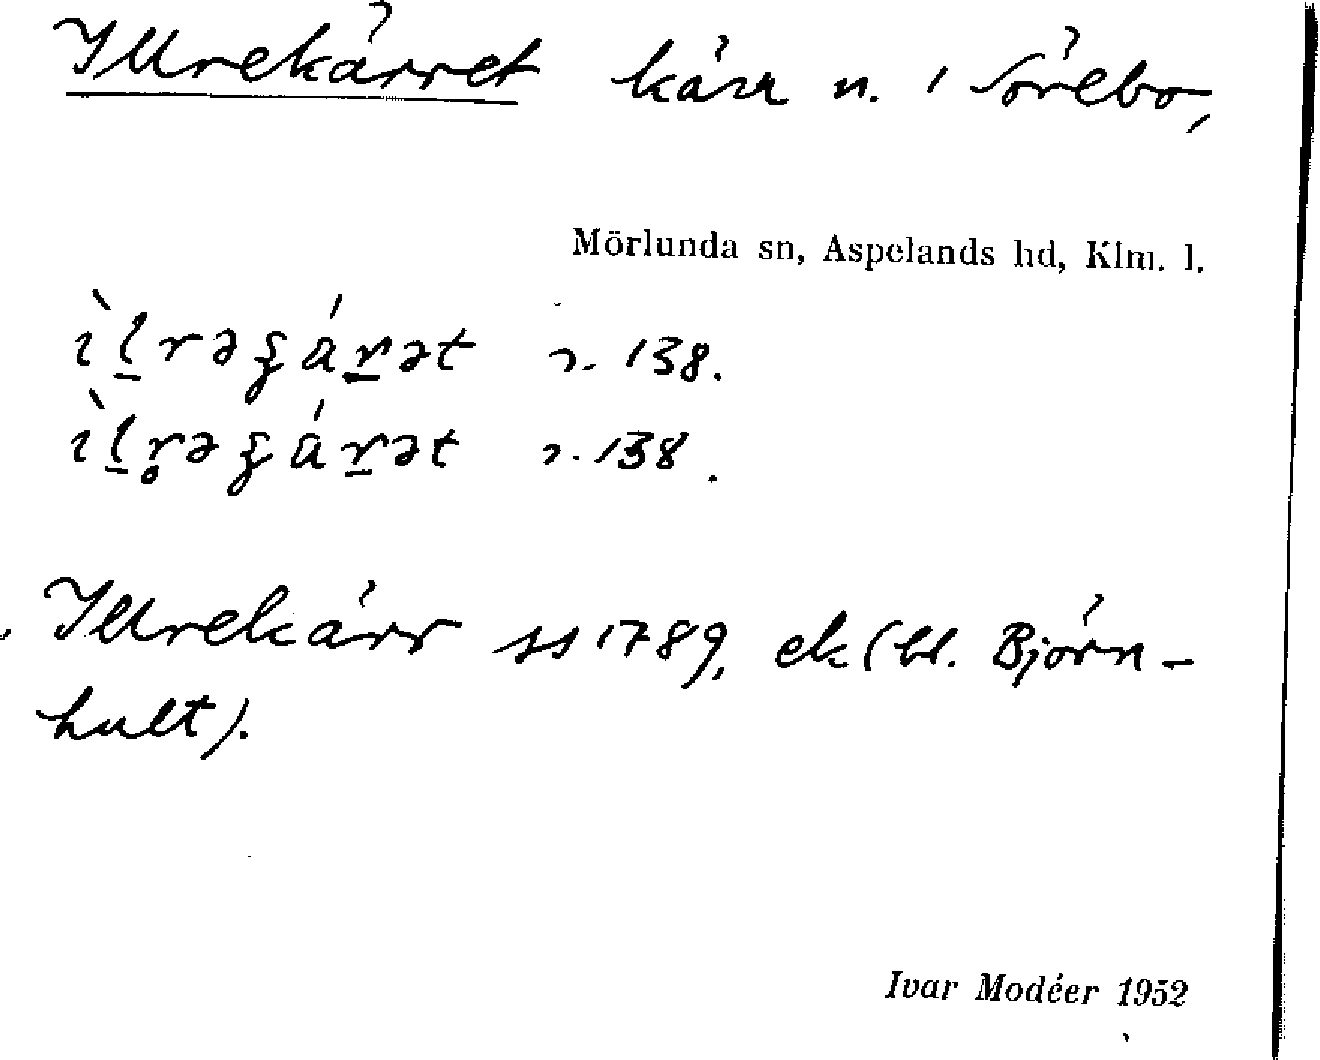 Illrekärret kärr n. i Sörebo,
Mörlunda sn, Aspelands hd, Klm. l.
138.
138.
Illrekärr 1789, ek (bl. Björn-
hult).
Ivar Modéer 1952